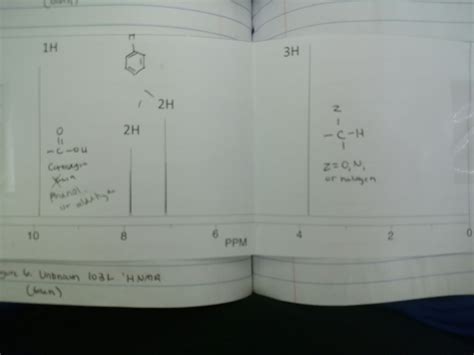 (
1H
H
3H
2H
2H
O
- C - OH
phenol
or aldehyde
Z
- C - H
Z = O, N,
or halogen
10
8
6
PPM
4
2
0
6: Unknown 103L ¹H NMR